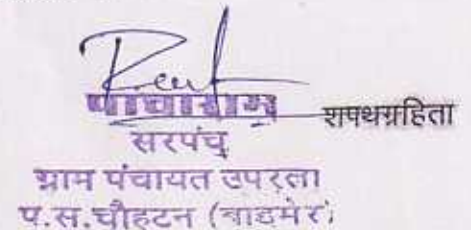 पाचाराम शपथग्रहिता
सरपंच
ग्राम पंचायत उपरला
प.स.चौहटन (बाडमेर)